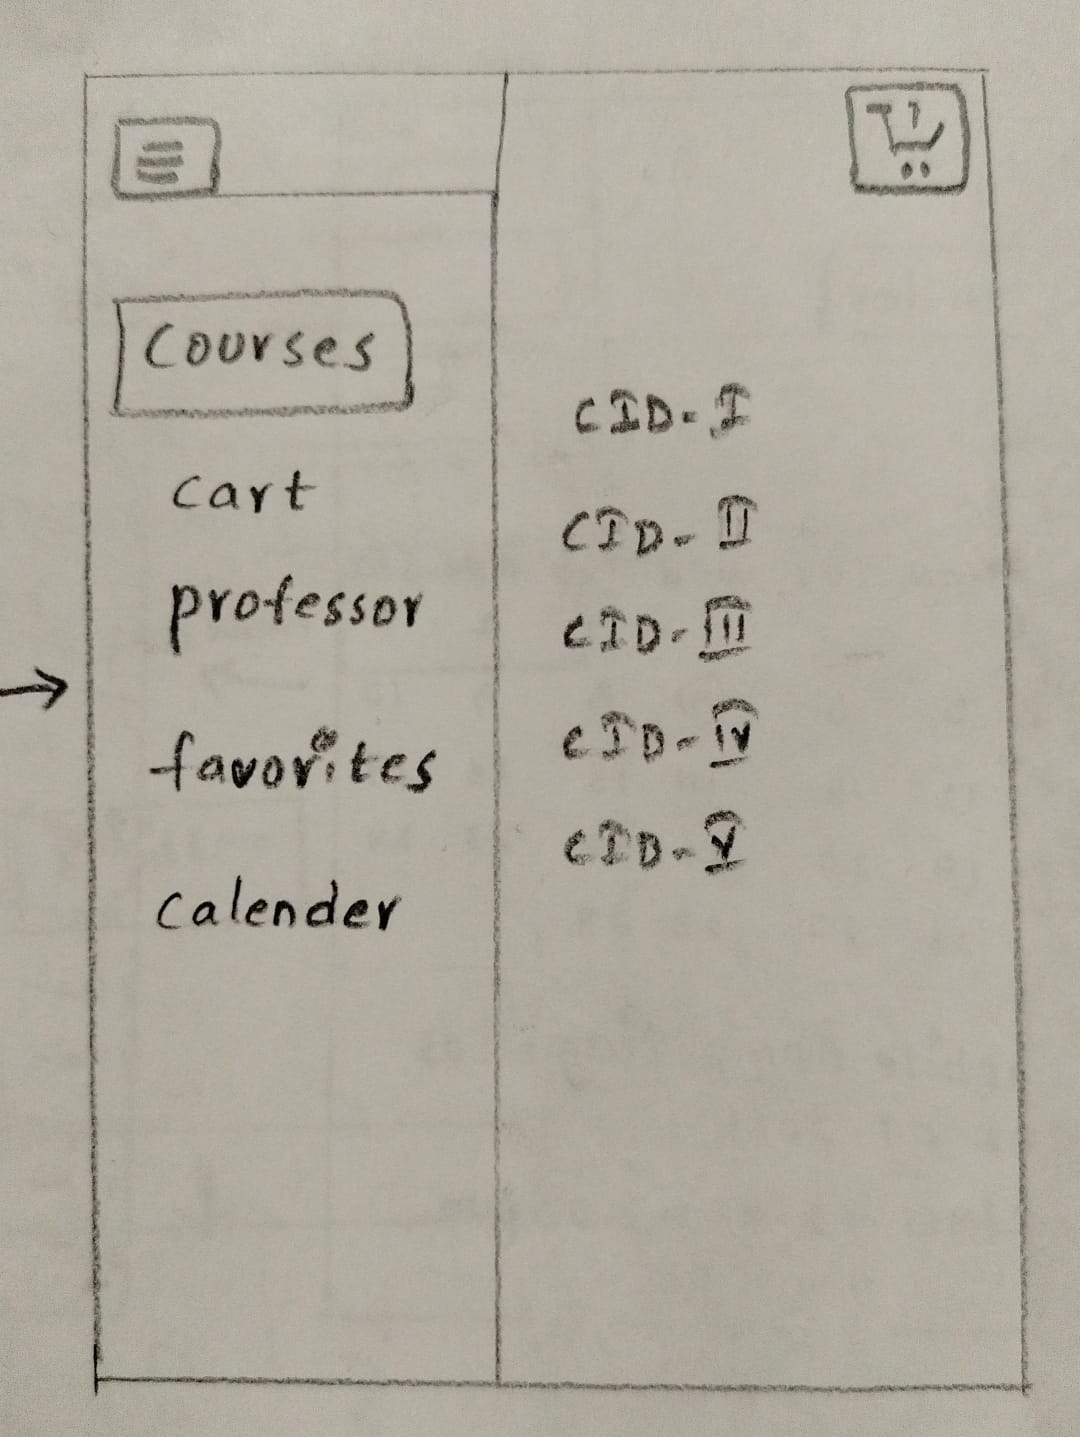 1
Courses
cart
professor
favorites
calender
CID-I
CID-II
CID-III
CID-IV
CID-V